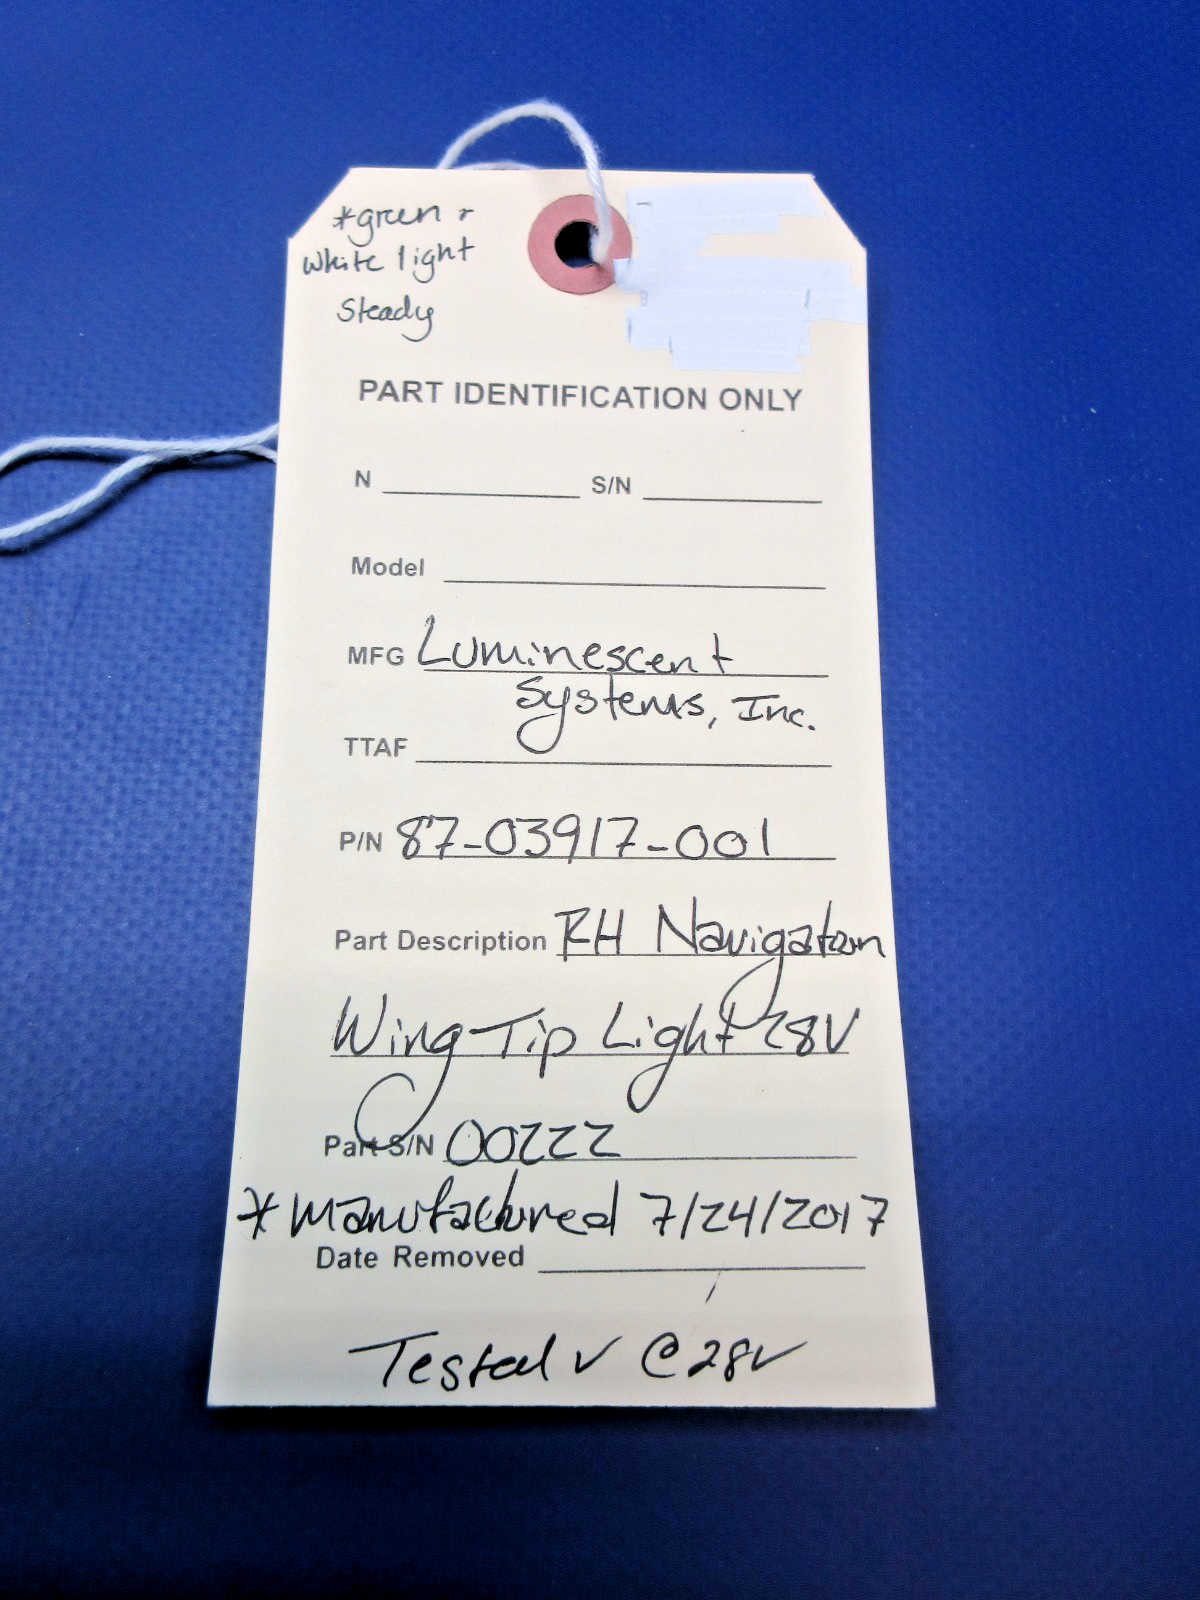 *green +
white light
steady
PART IDENTIFICATION ONLY
N S/N
Model
MFG Luminescent
Systems, Inc.
TTAF
P/N 87-03917-001
Part Description RH Navigation
Wing Tip Light 28V
Part S/N 00222
*manufactured 7/24/2017
Date Removed
Tested ✓ @ 28V